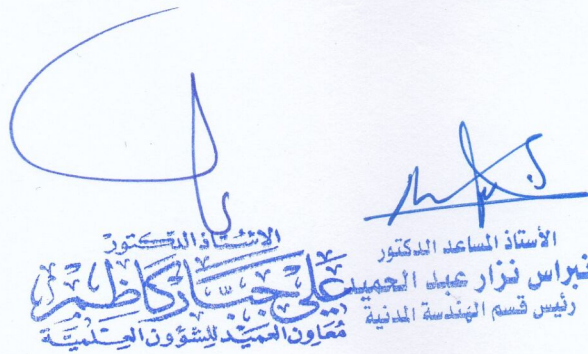 الأستاذ المساعد الدكتور
نبراس نزار عبد الحميد
رئيس قسم الهندسة المدنية
الاستاذ الدكتور
علي جبار كاظم
معاون العميد للشؤون العلمية